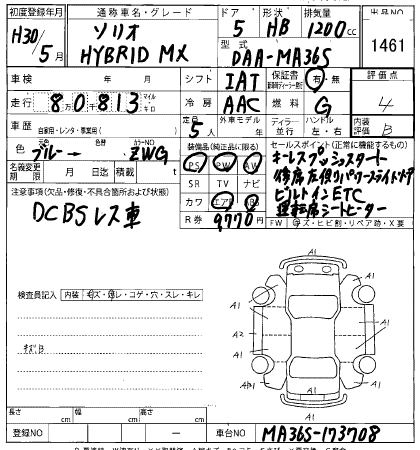 初度登録年月 通称車名・グレード ドア 形状 排気量 出品NO
H30/5月 ソリオ HYBRID MX 5 HB 1200cc 1461
型式 DAA-MA36S
車検 年 月 シフト IAT 保証書 有・無 評価点 4
走行 80万813 マイル キロ 冷房 AAC 燃料 G 内装評価 B
車歴 自家用・レンタ・事業用( ) 定員 5人 外車モデル 年 ディーラー 並行 ハンドル 左・右
色 ブルー 色替 カラーNO ZWG
装備品(純正品に限る) セールスポイント(正常に機能するもの)
PS PW AW キーレスプッシュスタート
名義変更期限 月 日 積載 t SR TV ナビ
注意事項(欠品・修復・不具合箇所および状態) カワ エアB ビルトインETC
DCBSレス車 R券 9770円 運転席シートヒーター
FW (キズ・ヒビ割・リペア跡・X要)
検査員記入 内装 (キズ・汚レ・コゲ・穴・スレ・キレ
キズB
A1
A1 A1
A1 A1
A2 A1
A1 A1
A1
長さ cm 幅 cm 高さ cm
登録NO ー 車台NO MA36S-173708